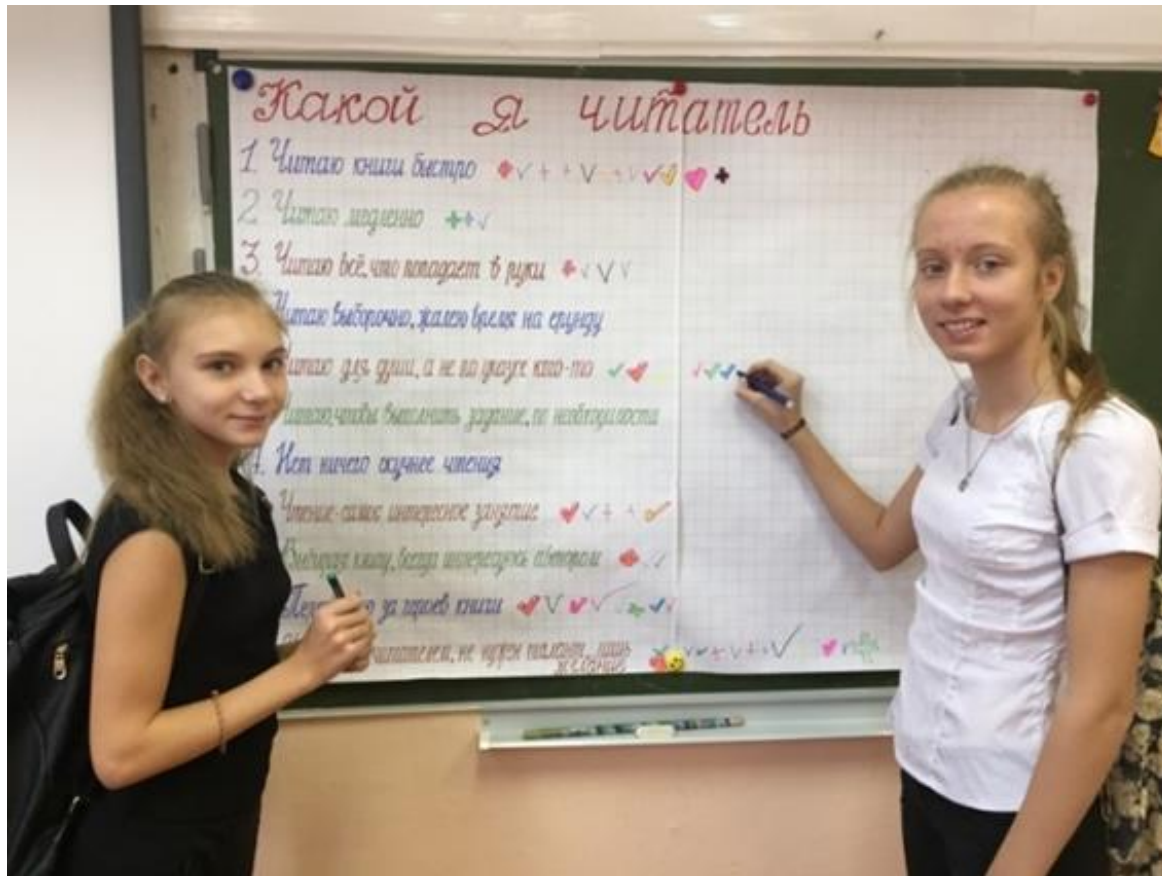 Какой я читатель
1. Читаю книги быстро
2. Читаю медленно
3. Читаю всё, что попадает в руки
Читаю выборочно, жалею время на ерунду
Читаю для души, а не по указке кого-то
Читаю, чтобы выполнить задание, по необходимости
7. Нет ничего скучнее чтения
Чтение-самое интересное занятие
Выбирая книгу, всегда интересуюсь автором
за героев книги
читателем, не нужен талант, лишь
желание